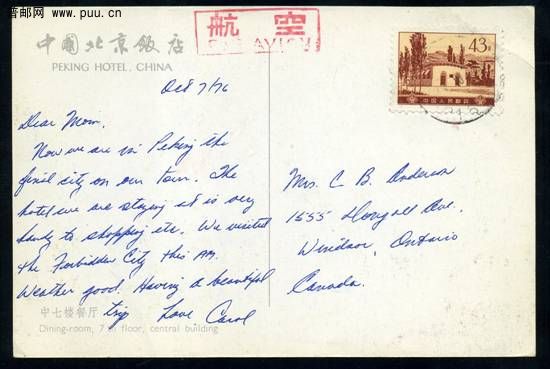 普邮网 www.puu.cn
航空
PAR AVION
中國北京飯店
PEKING HOTEL, CHINA
43分
中国人民邮政
Oct 7/76
Dear Mom,
Now we are in Peking the
final city on our tour. The
hotel we are staying at is very
handy to shopping etc. We visited
the Forbidden City this AM.
Weather good. Having a beautiful
trip Love Carol
Mrs. C B. Anderson
1555 Dougall Ave.
Windsor, Ontario
Canada.
中七楼餐厅
Dining-room, 7th floor, central building